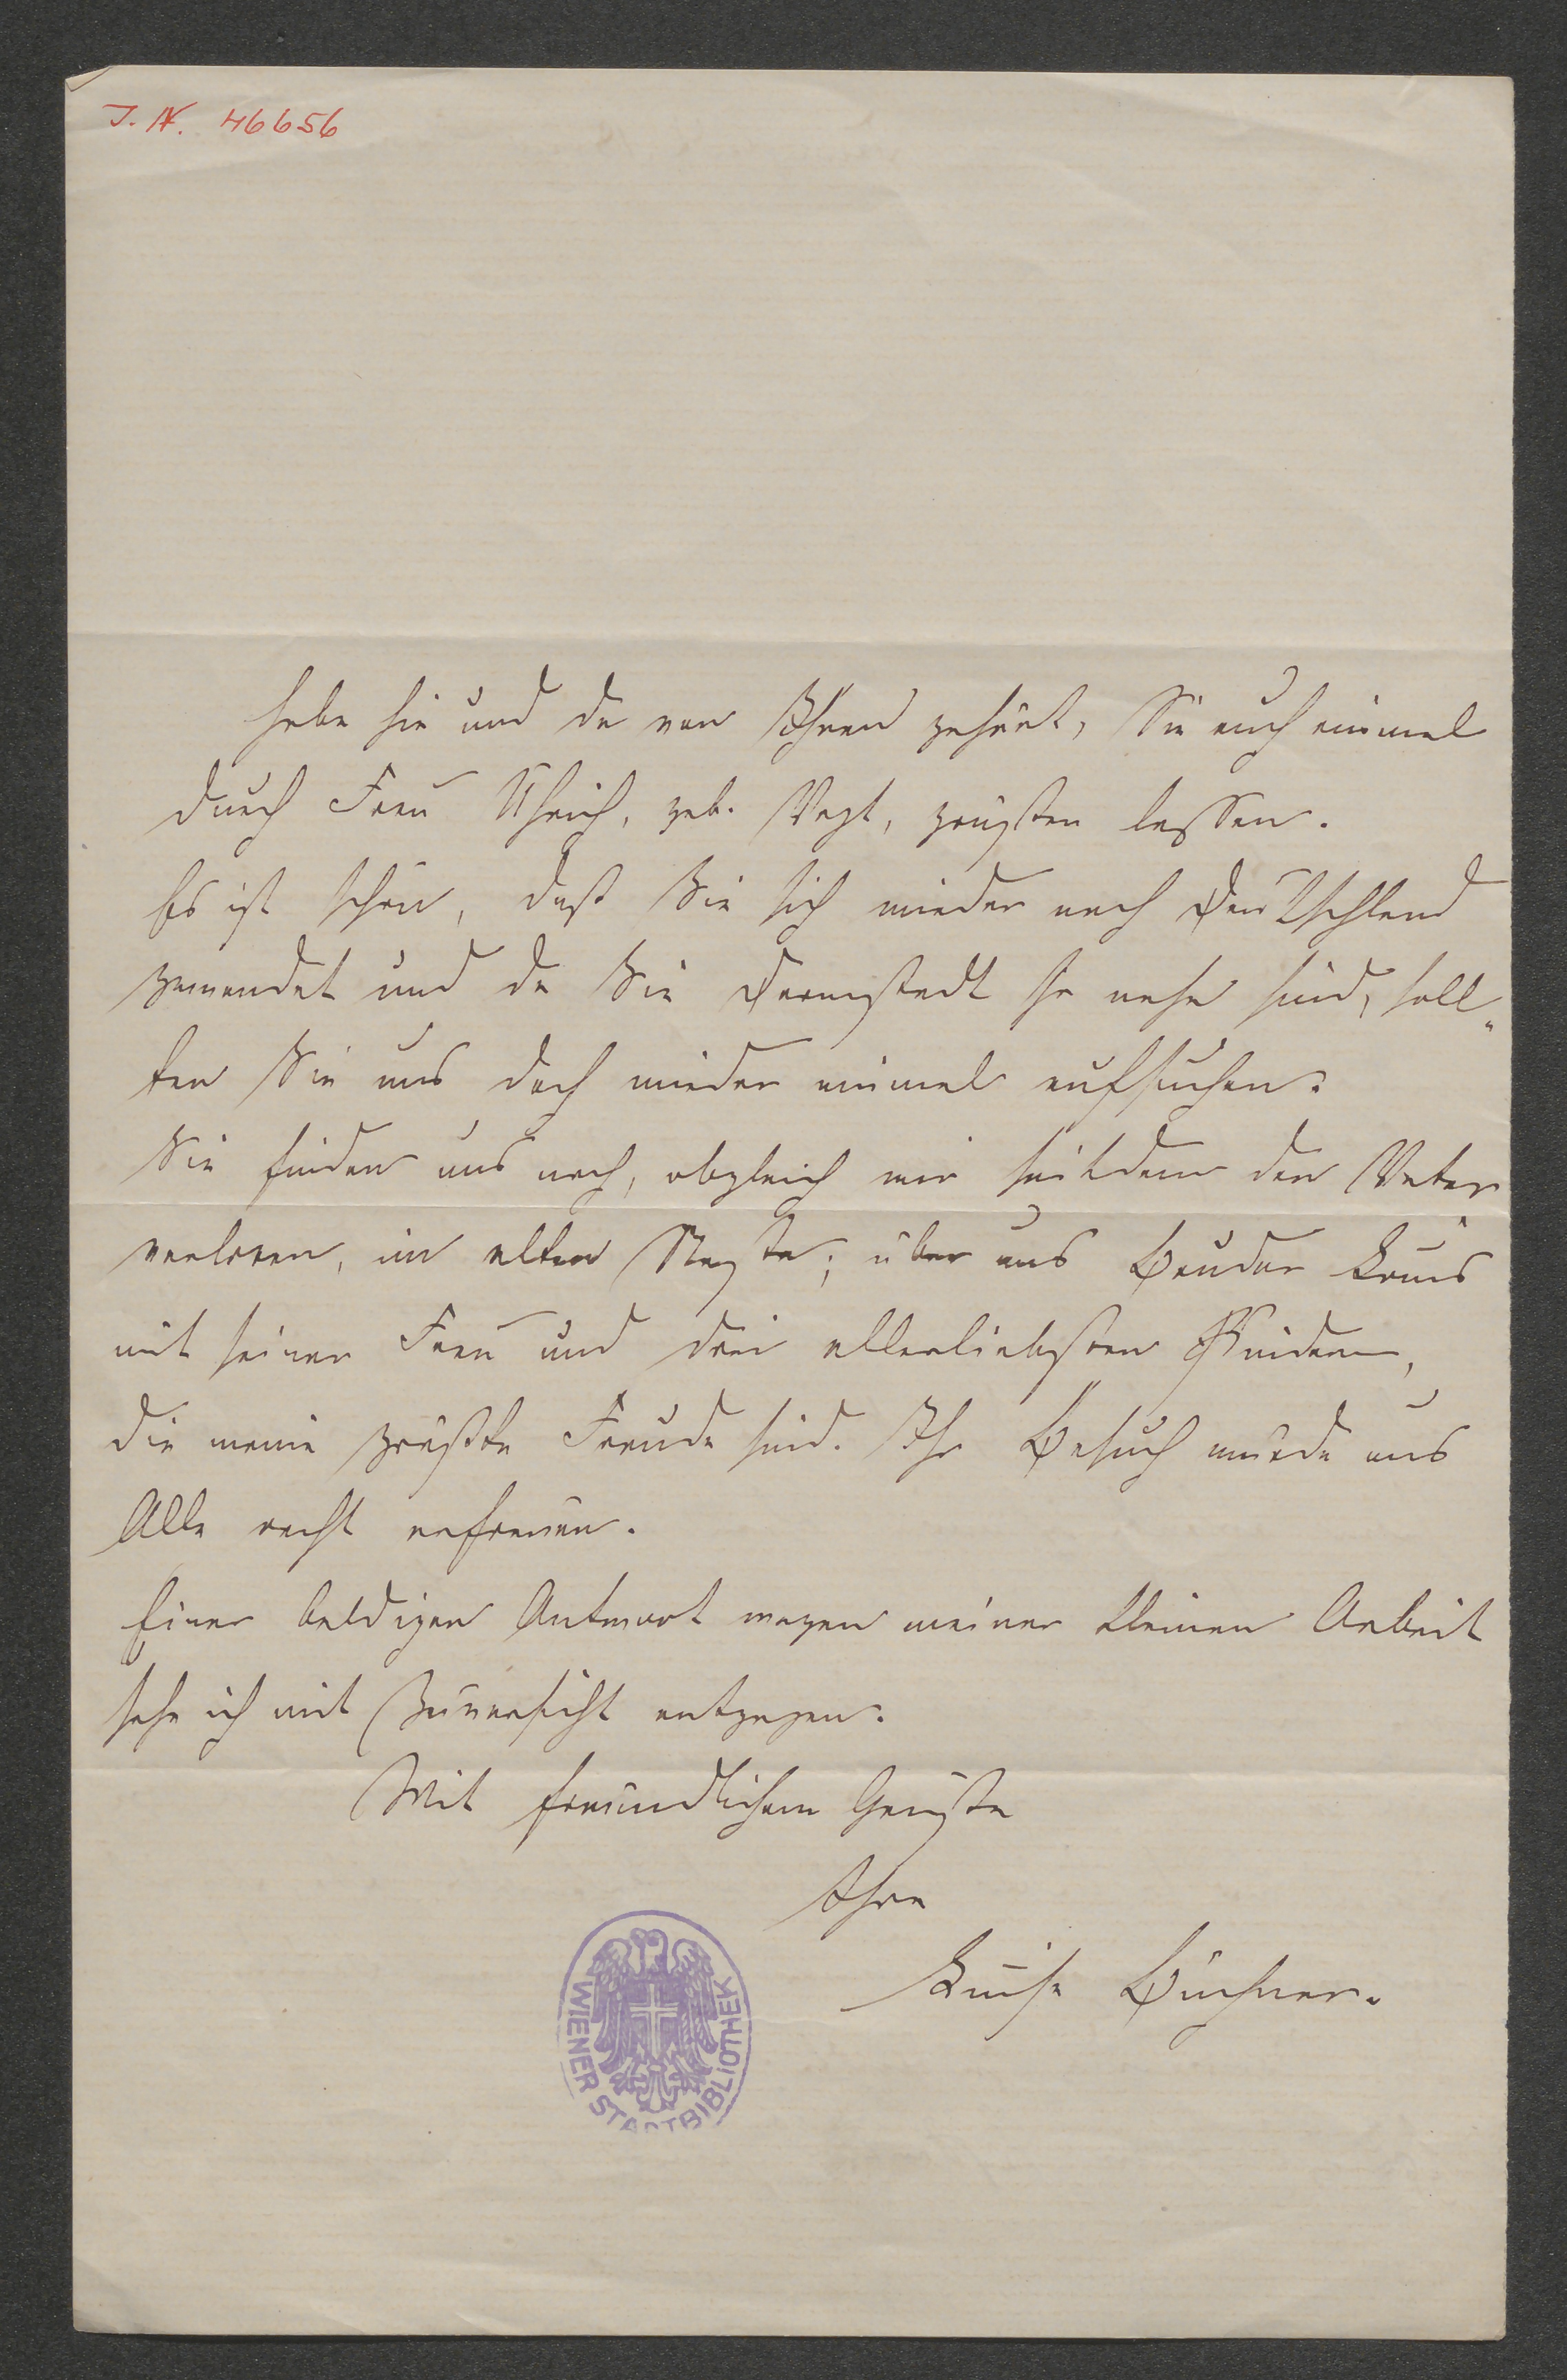 I. N. 46656
habe hie und da von Ihnen gehört, Sie auch einmal
durch Frau Uhrich, geb. Vogt, grüßen lassen.
Es ist schön, daß Sie sich wieder nach Deutschland
gewendet und da Sie Darmstadt so nahe sind, soll„
ten Sie uns doch wieder einmal aufsuchen.
Sie finden uns noch, obgleich wir seitdem den Vater
verloren, im alten Neste; über uns Bruder Louis
mit seiner Frau und drei allerliebsten Kindern,
die meine größte Freude sind. Ihr Besuch würde uns
Alle recht erfreuen.
Einer baldigen Antwort wegen meiner kleinen Arbeit
sehe ich mit Zuversicht entgegen.
Mit freundlichem Gruße
Ihre
Luise Büchner.
WIENER STADTBIBLIOTHEK